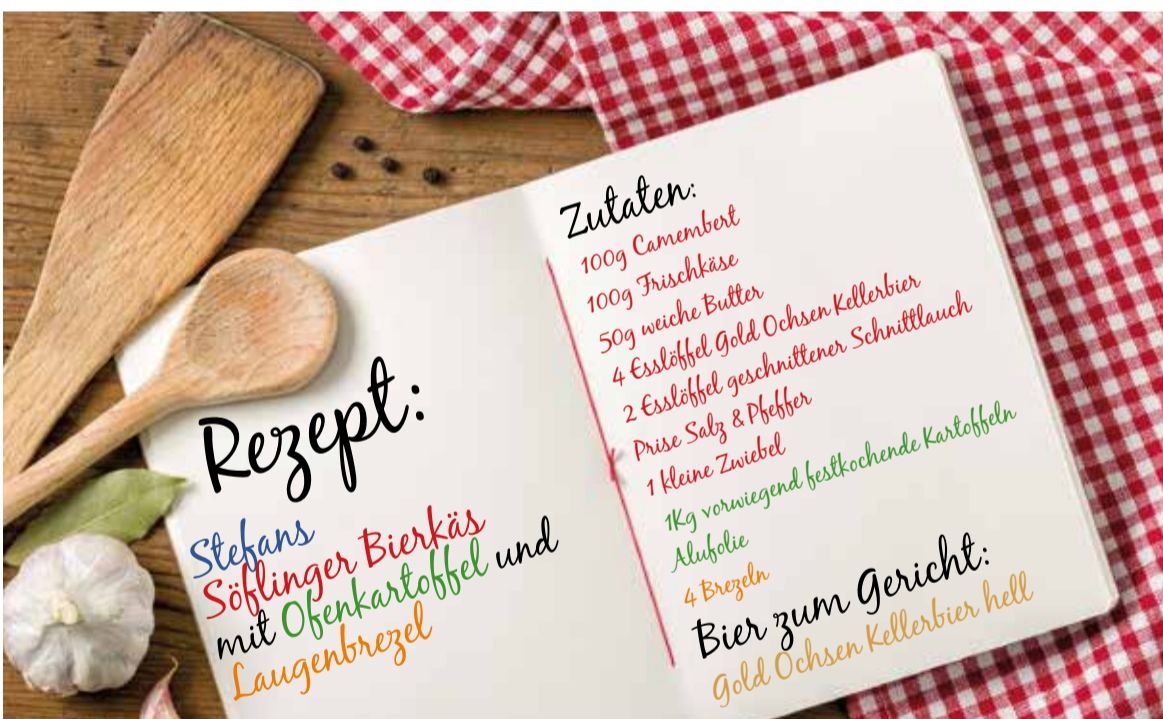 Rezept:
Stefans
Söflinger Bierkäs
mit Ofenkartoffel und
Laugenbrezel
Zutaten:
100g Camembert
100g Frischkäse
50g weiche Butter
4 Esslöffel Gold Ochsen Kellerbier
2 Esslöffel geschnittener Schnittlauch
Prise Salz & Pfeffer
1 kleine Zwiebel
1Kg vorwiegend festkochende Kartoffeln
Alufolie
4 Brezeln
Bier zum Gericht:
Gold Ochsen Kellerbier hell